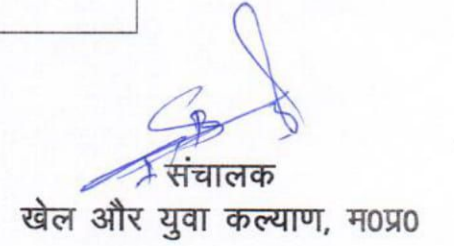 संचालक
खेल और युवा कल्याण, म0प्र0